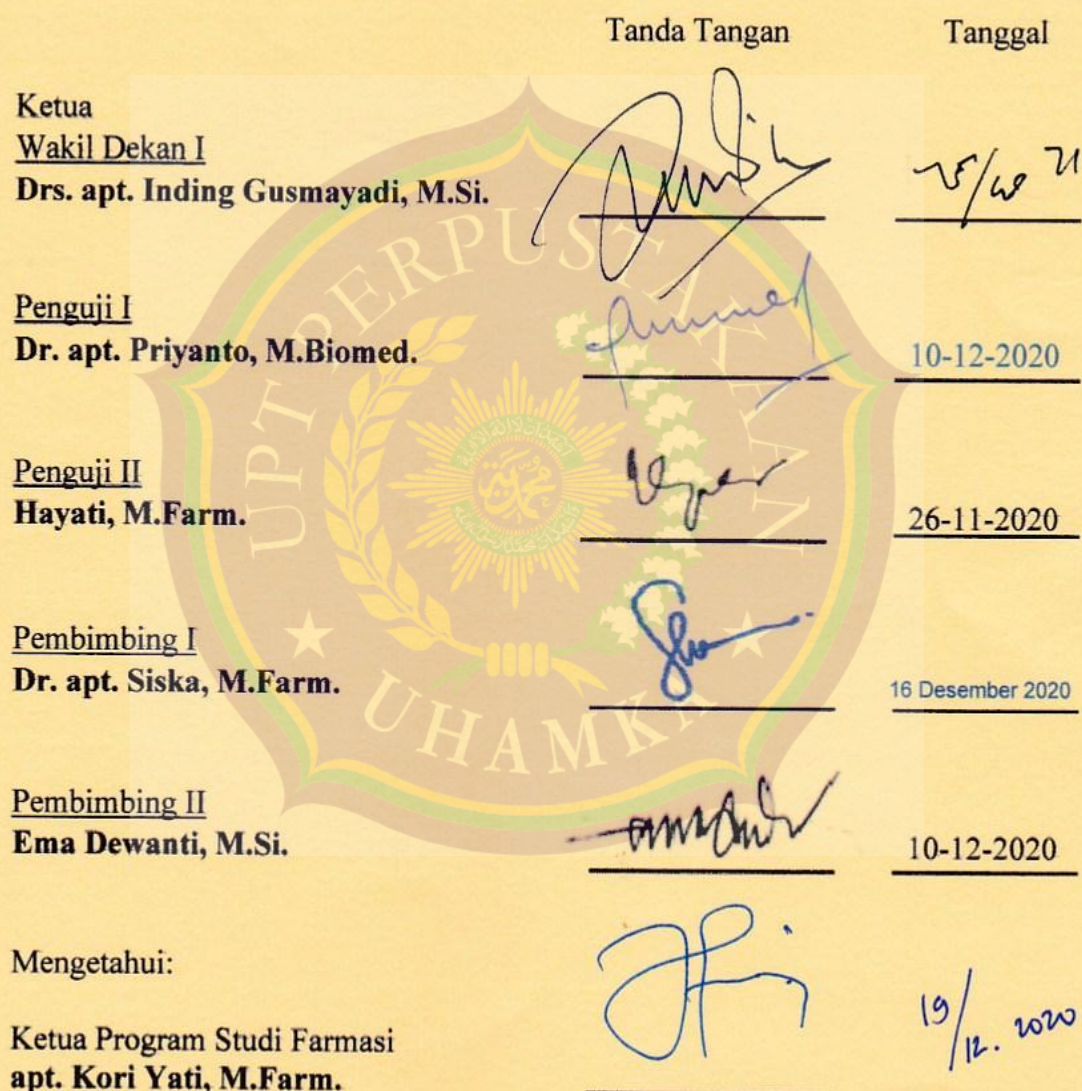 Tanda Tangan Tanggal
Ketua
Wakil Dekan I
Drs. apt. Inding Gusmayadi, M.Si.
Penguji I
Dr. apt. Priyanto, M.Biomed.
10-12-2020
Penguji II
Hayati, M.Farm.
26-11-2020
Pembimbing I
Dr. apt. Siska, M.Farm.
16 Desember 2020
Pembimbing II
Ema Dewanti, M.Si.
10-12-2020
Mengetahui:
Ketua Program Studi Farmasi
apt. Kori Yati, M.Farm.
19/12. 2020
UPT PERPUSTAKAAN
UHAMKA